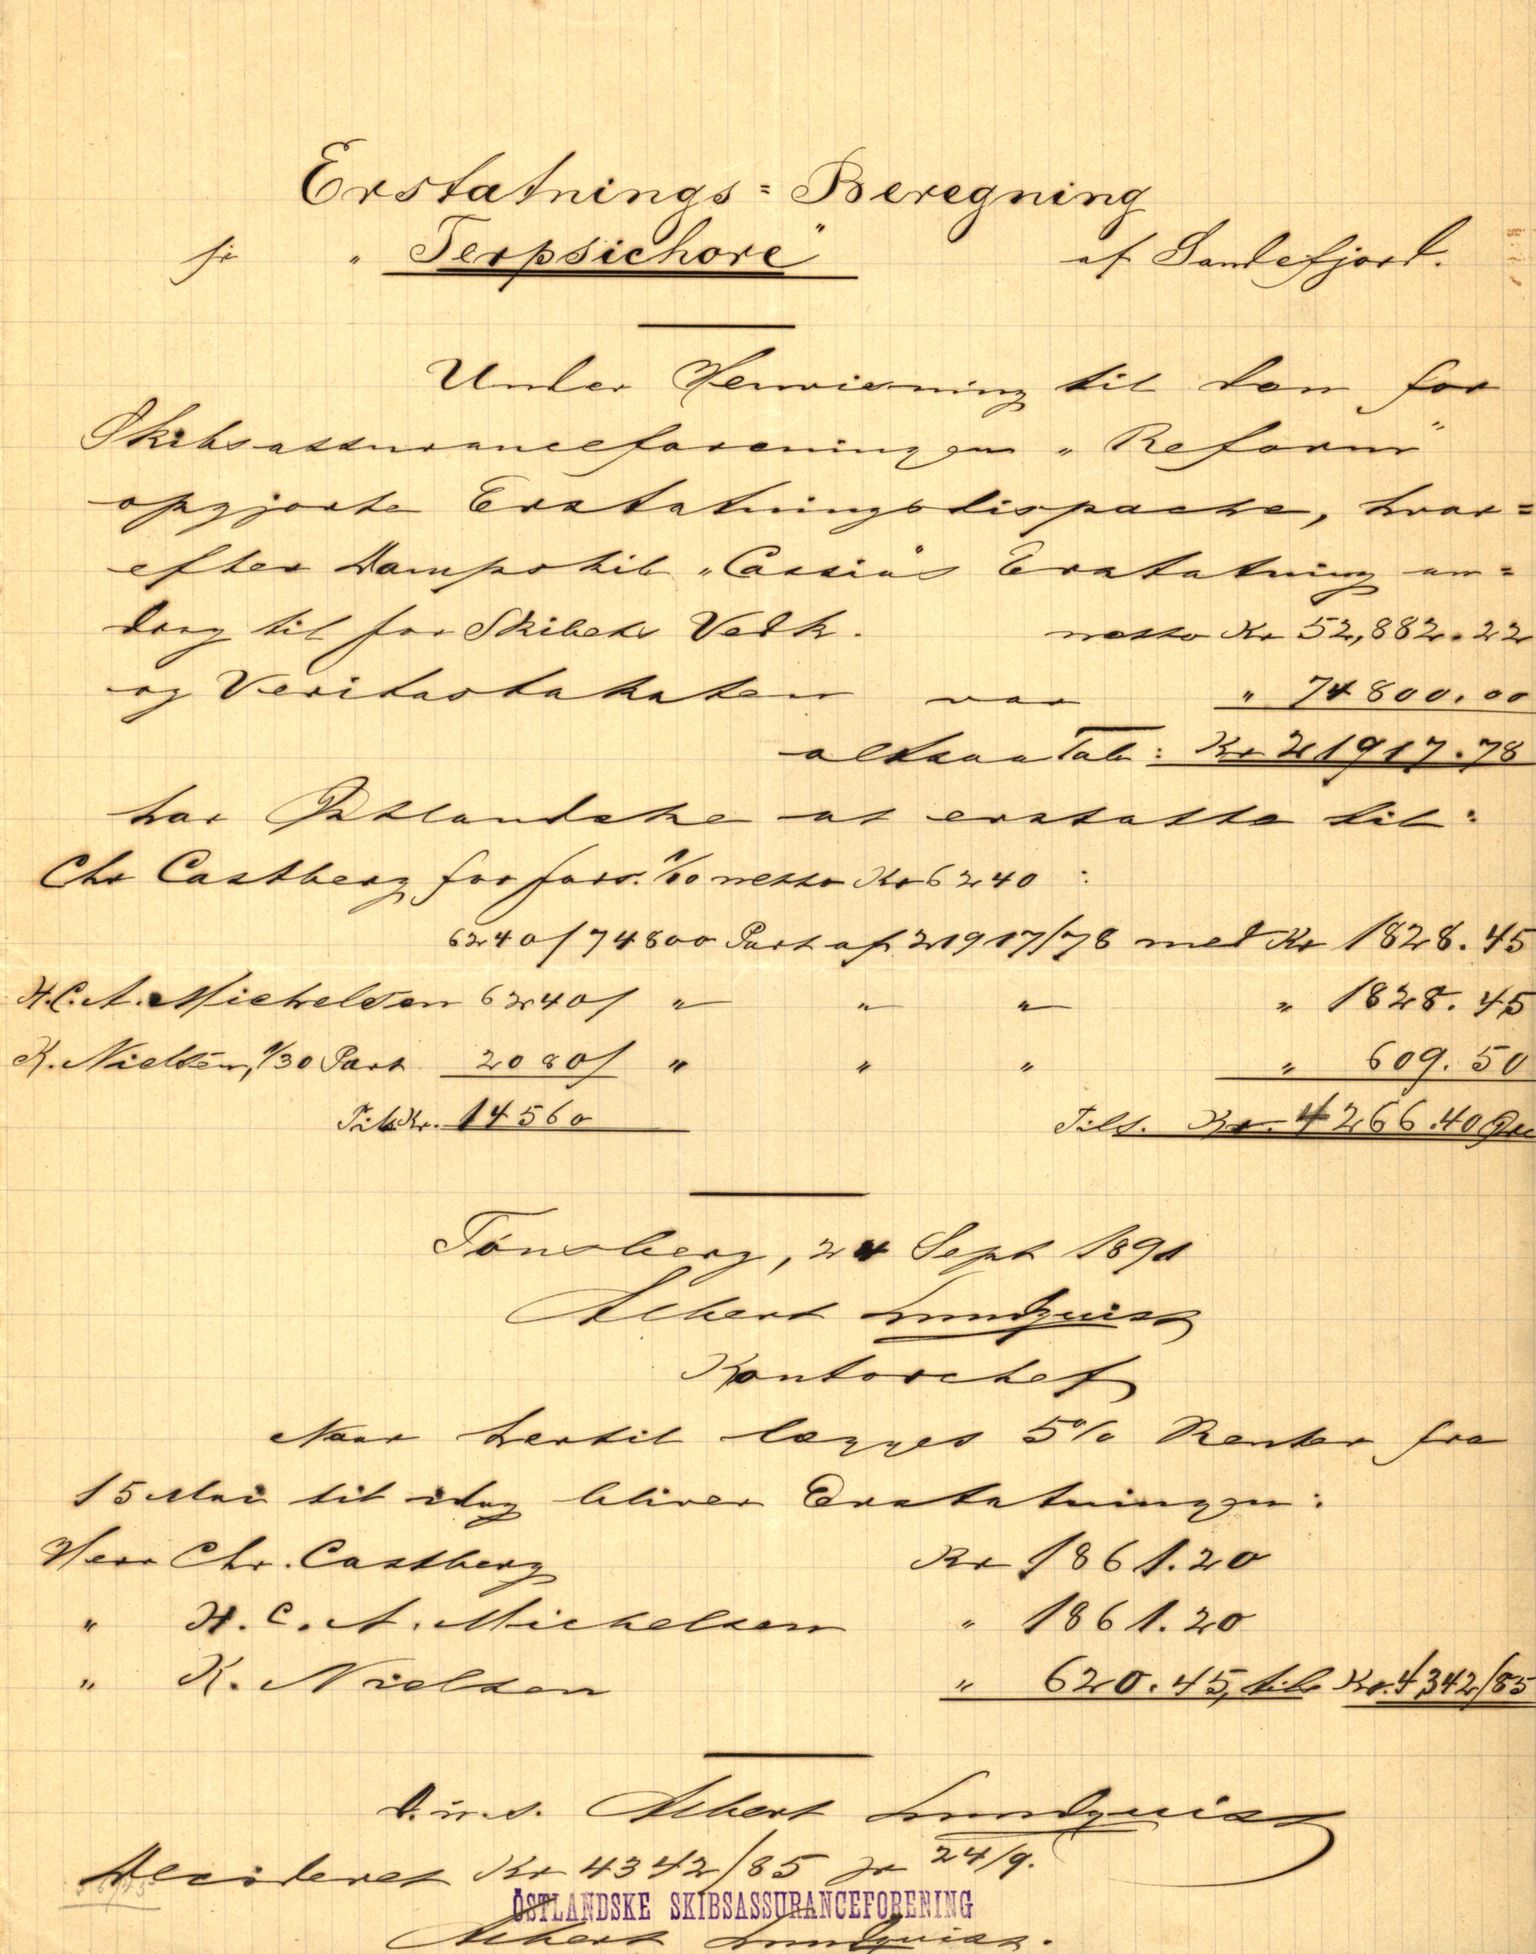 Erstatnings = Beregning
fr „Terpsichore" af Sandefjord.
Under Henvisning til den for
Skibsassuranceforeningen „Reform"
opgjorte Erstatningsdispache, hvor=
efter Dampskib „Cassius" Erstatning an=
drog til for Skibets Vedk. netto Kr 52,882.22
og Veritastaksten var „ 74800.00
altsaa Tab: Kr 21917.78
har Østlandske at erstatte til:
Chr Castberg for fors. 1/10 netto Kr 6240 :
6240/74800 Part af 21917/78 med Kr 1828.45
H.C.A. Michelsen 6240/ „ „ „ „ 1828.45
K. Nielsen, 1/30 Part 2080/ „ „ „ „ 609.50
Tils Kr. 14560 Tils. Kr. 4266.40 Øre
Tönsberg, 24 Sept 1891
Albert Lundquist
Kontorchef
Naar hertil lægges 5% Renter fra
15 Mai til idag bliver Erstatningen:
Herr Chr. Castberg Kr 1861.20
„ H.C.A. Michelsen „ 1861.20
„ K. Nielsen „ 620.45, tils Kr. 4342/85
D.u.s. Albert Lundquist
Decideret Kr 4342/85 pr 24/9.
ÖSTLANDSKE SKIBSASSURANCEFORENING
Albert Lundquist.